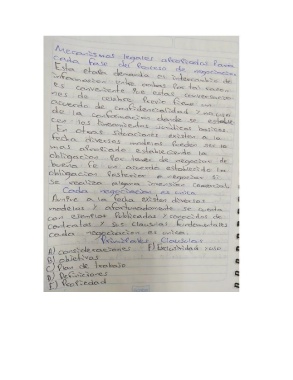 Mecanismos legales apropiados para
cada fase del proceso de negociación
Esta etapa demanda el intercambio de
información entre ambas por tal razón
es conveniente que estas conversacio-
nes no celebre previo firme un
acuerdo de confidencialidad
de la conformación donde se
con los lineamientos jurídicos básicos.
En otras situaciones existen a la
fecha diversos modelos pueden ser el
mas apropiado estableciendo la
obligación por hacer de negociar de
buena fe un acuerdo estableciendo la
obligación posterior de negociar si
se realiza alguna inversión comercial
Cada negociación es única
Aunque a la fecha existen diversos
modelos y afortunadamente se cuenta
con ejemplos publicados y conocidos de
contratos y sus clausulas fundamentales
cada negociación es única.
Principales clausulas
A) consideraciones F)
B) objetivos
C) Plan de trabajo
D) Definiciones
E) Propiedad